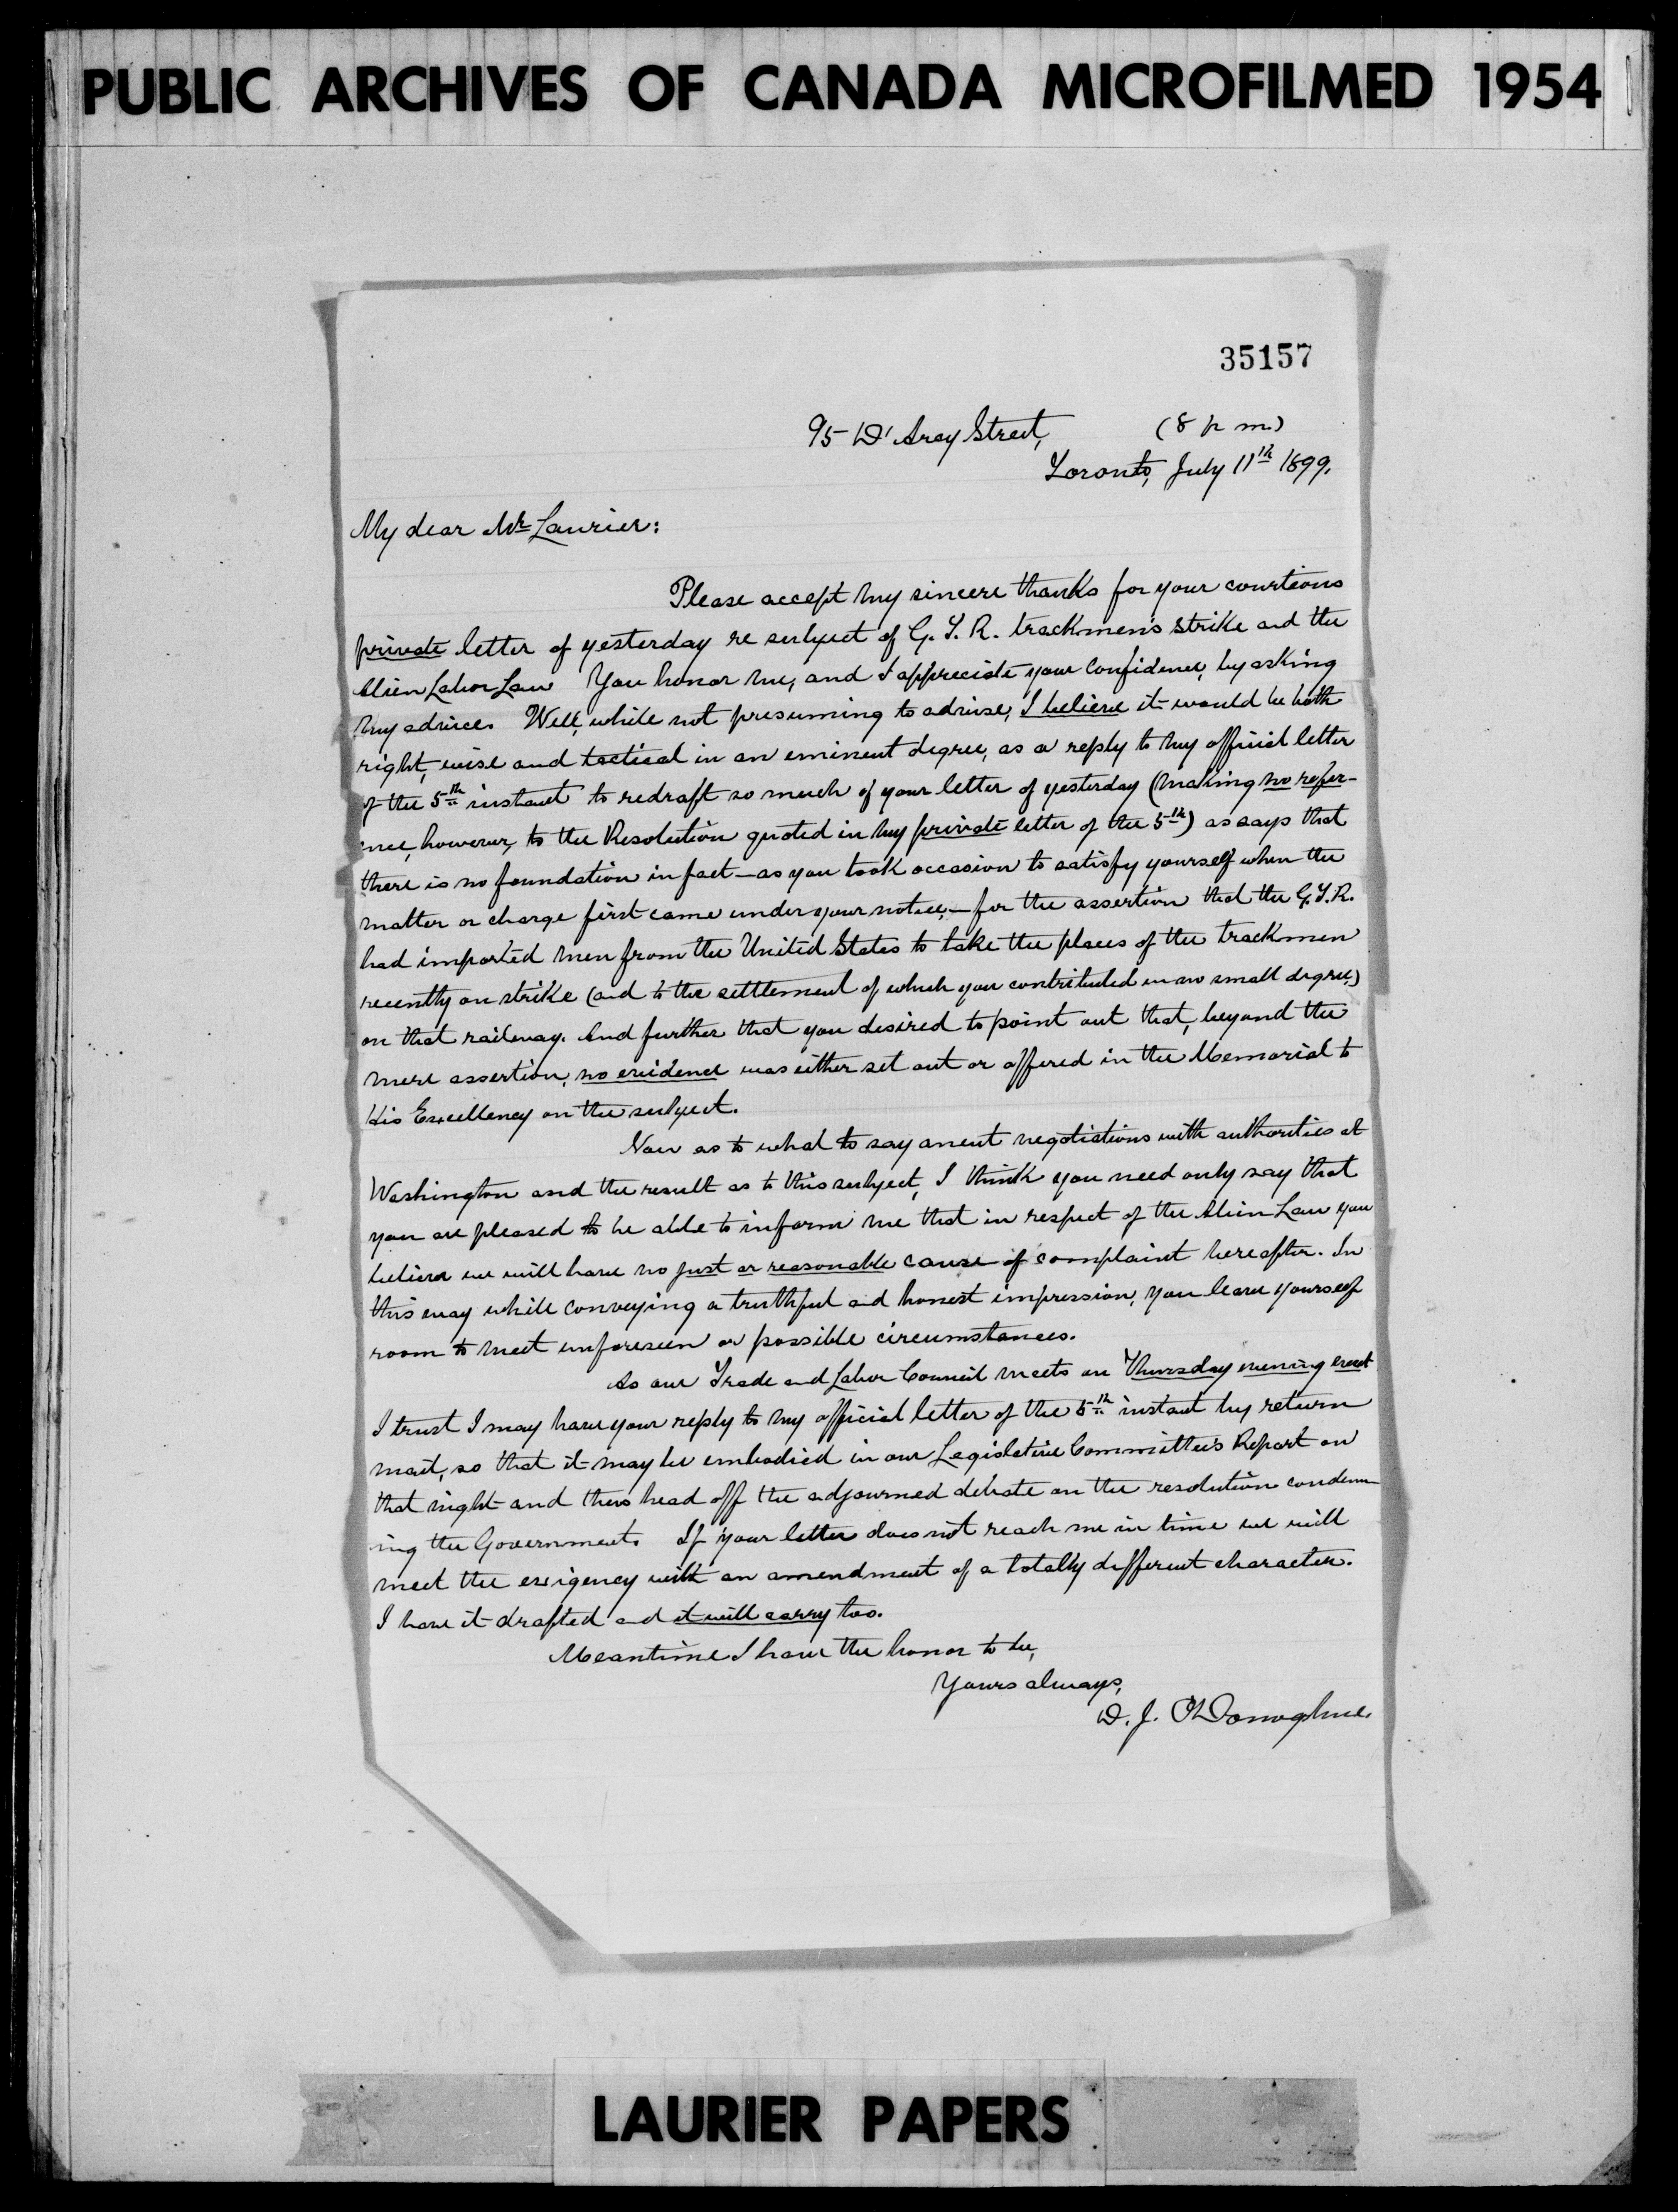 PUBLIC ARCHIVES OF CANADA MICROFILMED 1954
35157
95 D'Arcy Street, (8 p m.)
Toronto, July 11th 1899.
My dear Mr Laurier:
Please accept my sincere thanks for your courteous
private letter of yesterday re subject of G. T. R. trackmen's strike and the
Alien Labor Law. You honor me, and I appreciate your confidence, by asking
my advice. Well, while not presuming to advise, I believe it would be both
right, wise and tactical in an eminent degree, as a reply to my official letter
of the 5th instant to redraft so much of your letter of yesterday (making no refer-
ence, however, to the Resolution quoted in my private letter of the 5th) as says that
there is no foundation in fact—as you took occasion to satisfy yourself when the
matter or charge first came under your notice,—for the assertion that the G.T.R.
had imported men from the United States to take the places of the trackmen
recently on strike (and to the settlement of which you contributed in no small degree,)
on that railway. And further that you desired to point out that, beyond the
mere assertion, no evidence was either set out or offered in the Memorial to
His Excellency on the subject.
Now as to what to say anent negotiations with authorities at
Washington and the result as to this subject, I think you need only say that
you are pleased to be able to inform me that in respect of the Alien Law you
believe we will have no just or reasonable cause of complaint hereafter. In
this way while conveying a truthful and honest impression, you leave yourself
room to meet unforeseen or possible circumstances.
As our Trade and Labor Council meets on Thursday evening next
I trust I may have your reply to my official letter of the 5th instant by return
mail, so that it may be embodied in our Legislative Committee's Report on
that night and thus head off the adjourned debate on the resolution condemn-
ing the Government. If your letter does not reach me in time we will
meet the exigency with an amendment of a totally different character.
I have it drafted and it will carry too.
Meantime I have the honor to be,
Yours always,
D. J. O'Donoghue.
LAURIER PAPERS